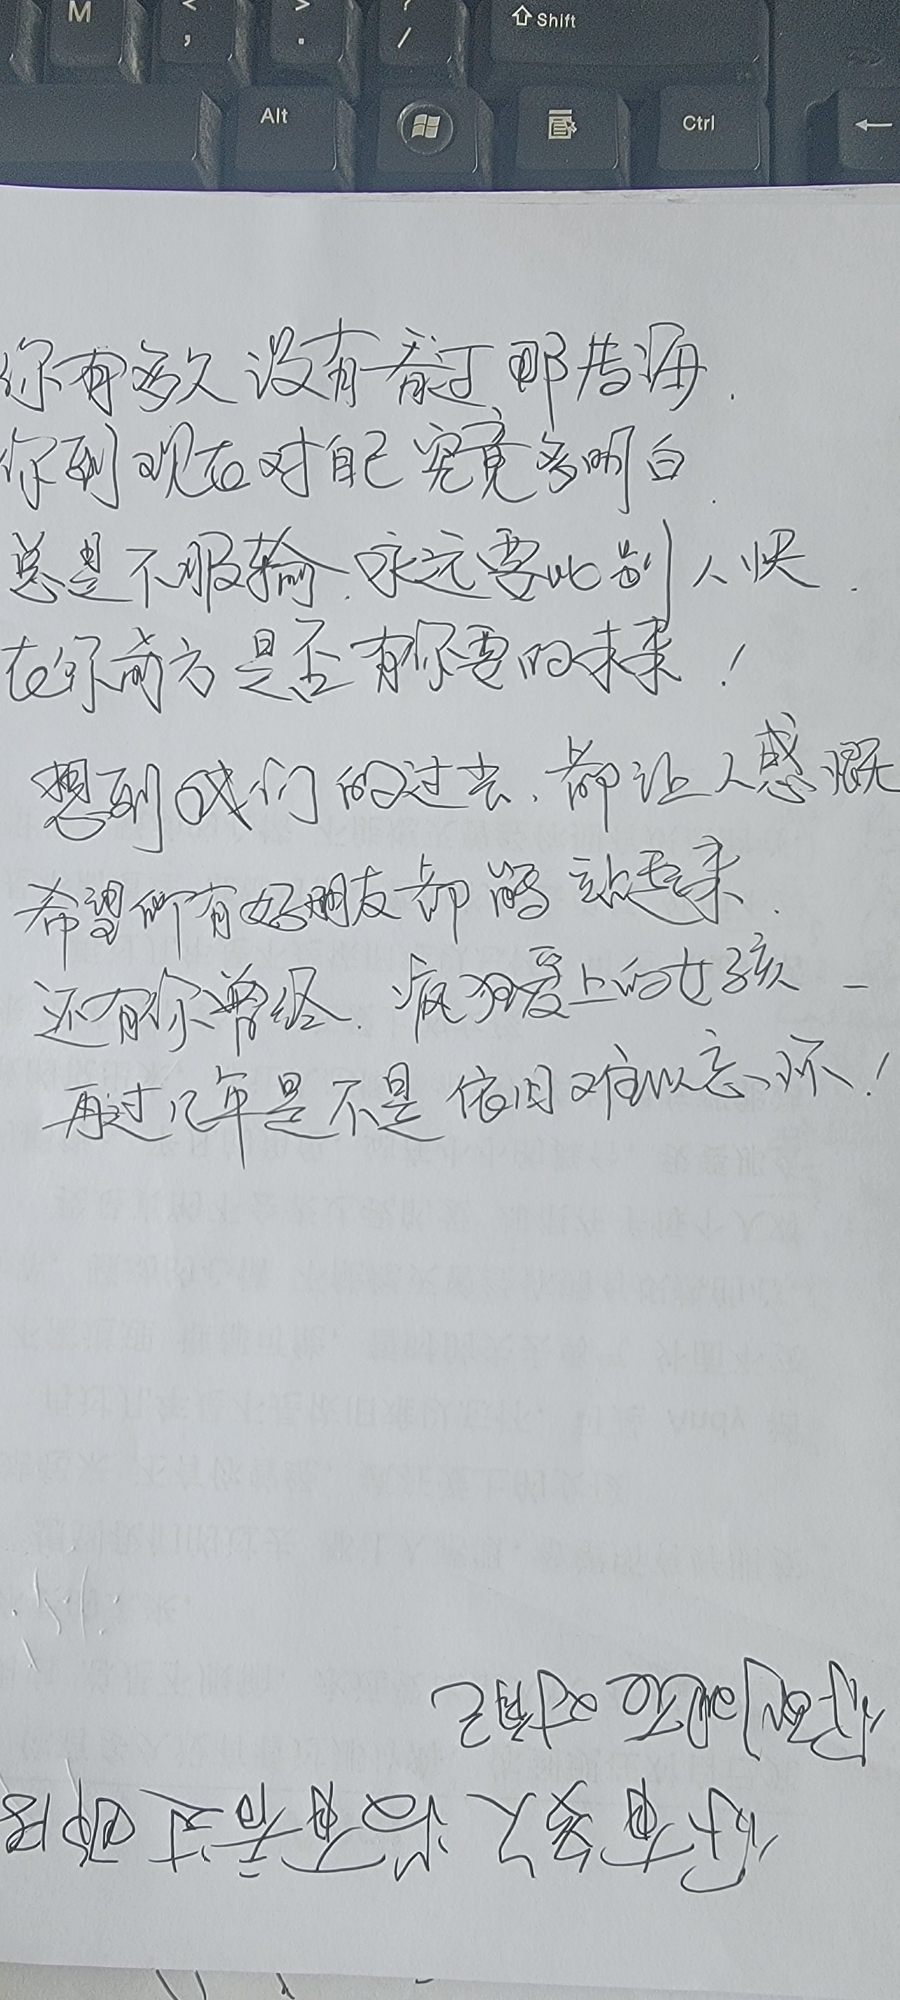 M < , > . ? / ⇧ Shift
Alt Ctrl ←
你有多久没有看过那片海.
你到现在对自己究竟多明白.
总是不服输.永远要比别人快.
在你前方是否有你要的未来!
想到我们的过去.都让人感慨
希望所有好朋友都能站起来.
还有你曾经.疯狂爱上的女孩-
再过几年是不是依旧难以忘怀!
你到现在对自己
你有多久没有看过那片